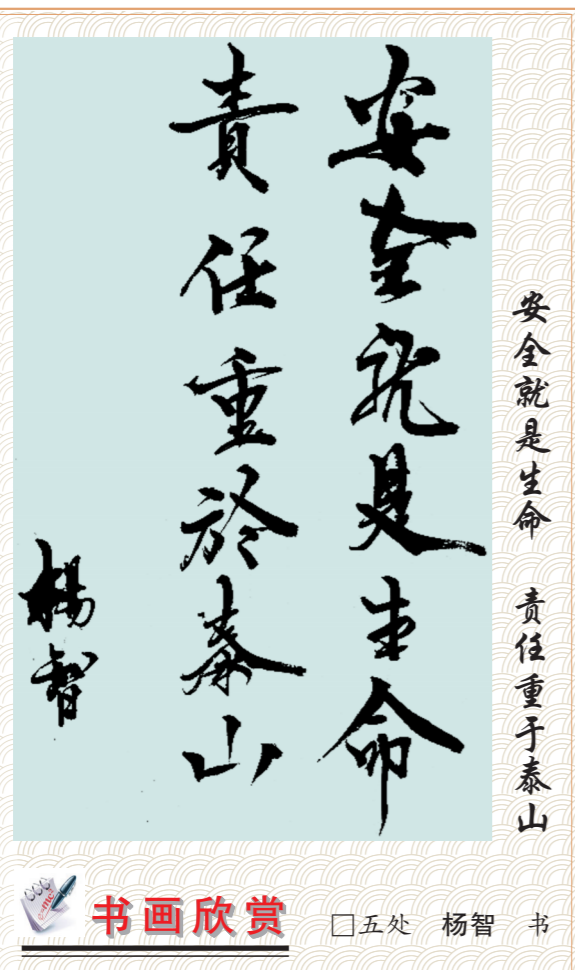 安全就是生命
責任重於泰山
杨智
安全就是生命 责任重于泰山
书画欣赏
□五处 杨智 书